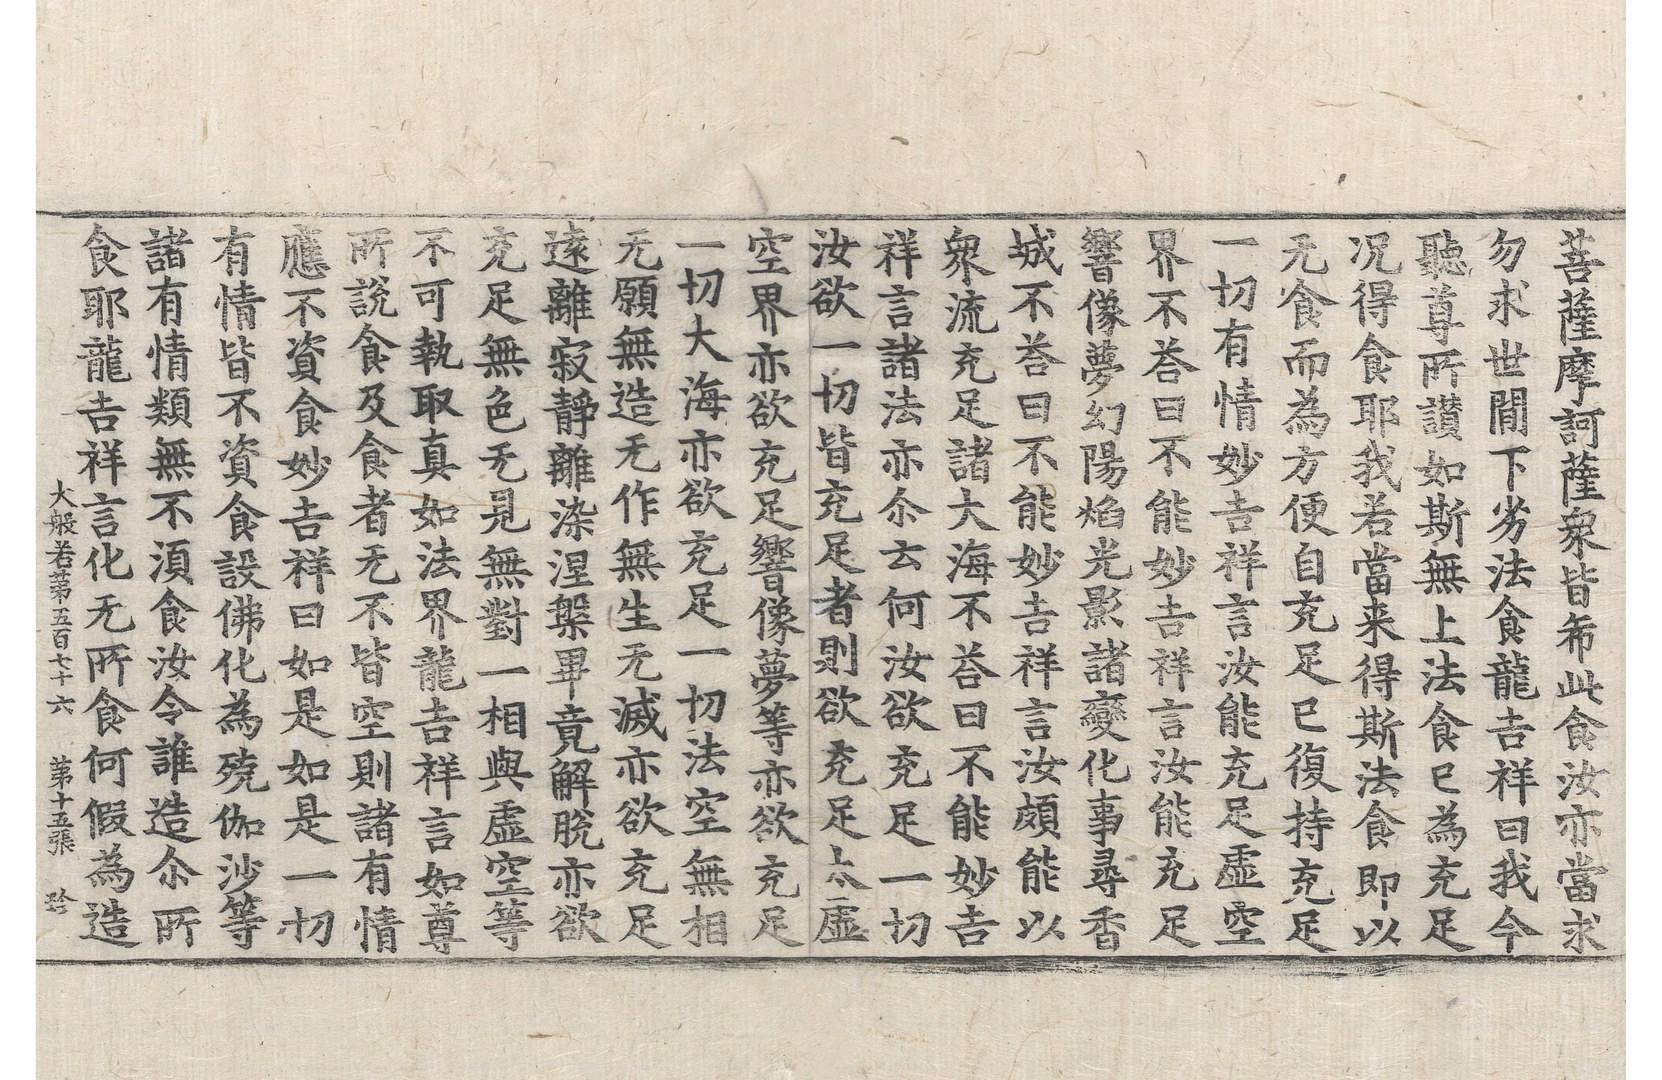 菩薩摩訶薩衆皆希此食汝亦當求
勿求世間下劣法食龍吉祥曰我今
聽尊所讃如斯無上法食已為充足
况得食耶我若當来得斯法食即以
无食而為方便自充足已復持充足
一切有情妙吉祥言汝能充足虛空
界不荅曰不能妙吉祥言汝能充足
響像夢幻陽焰光影諸變化事尋香
城不荅曰不能妙吉祥言汝頗能以
衆流充足諸大海不荅曰不能妙吉
祥言諸法亦尒云何汝欲充足一切
汝欲一切皆充足者則欲充足太虛
空界亦欲充足響像夢等亦欲充足
一切大海亦欲充足一切法空無相
无願無造无作無生无滅亦欲充足
遠離寂靜離染涅槃畢竟解脫亦欲
充足無色无見無對一相與虛空等
不可執取真如法界龍吉祥言如尊
所說食及食者无不皆空則諸有情
應不資食妙吉祥曰如是如是一切
有情皆不資食設佛化為殑伽沙等
諸有情類無不須食汝令誰造尒所
食耶龍吉祥言化无所食何假為造
大般若第五百七十六 第十五張 玲